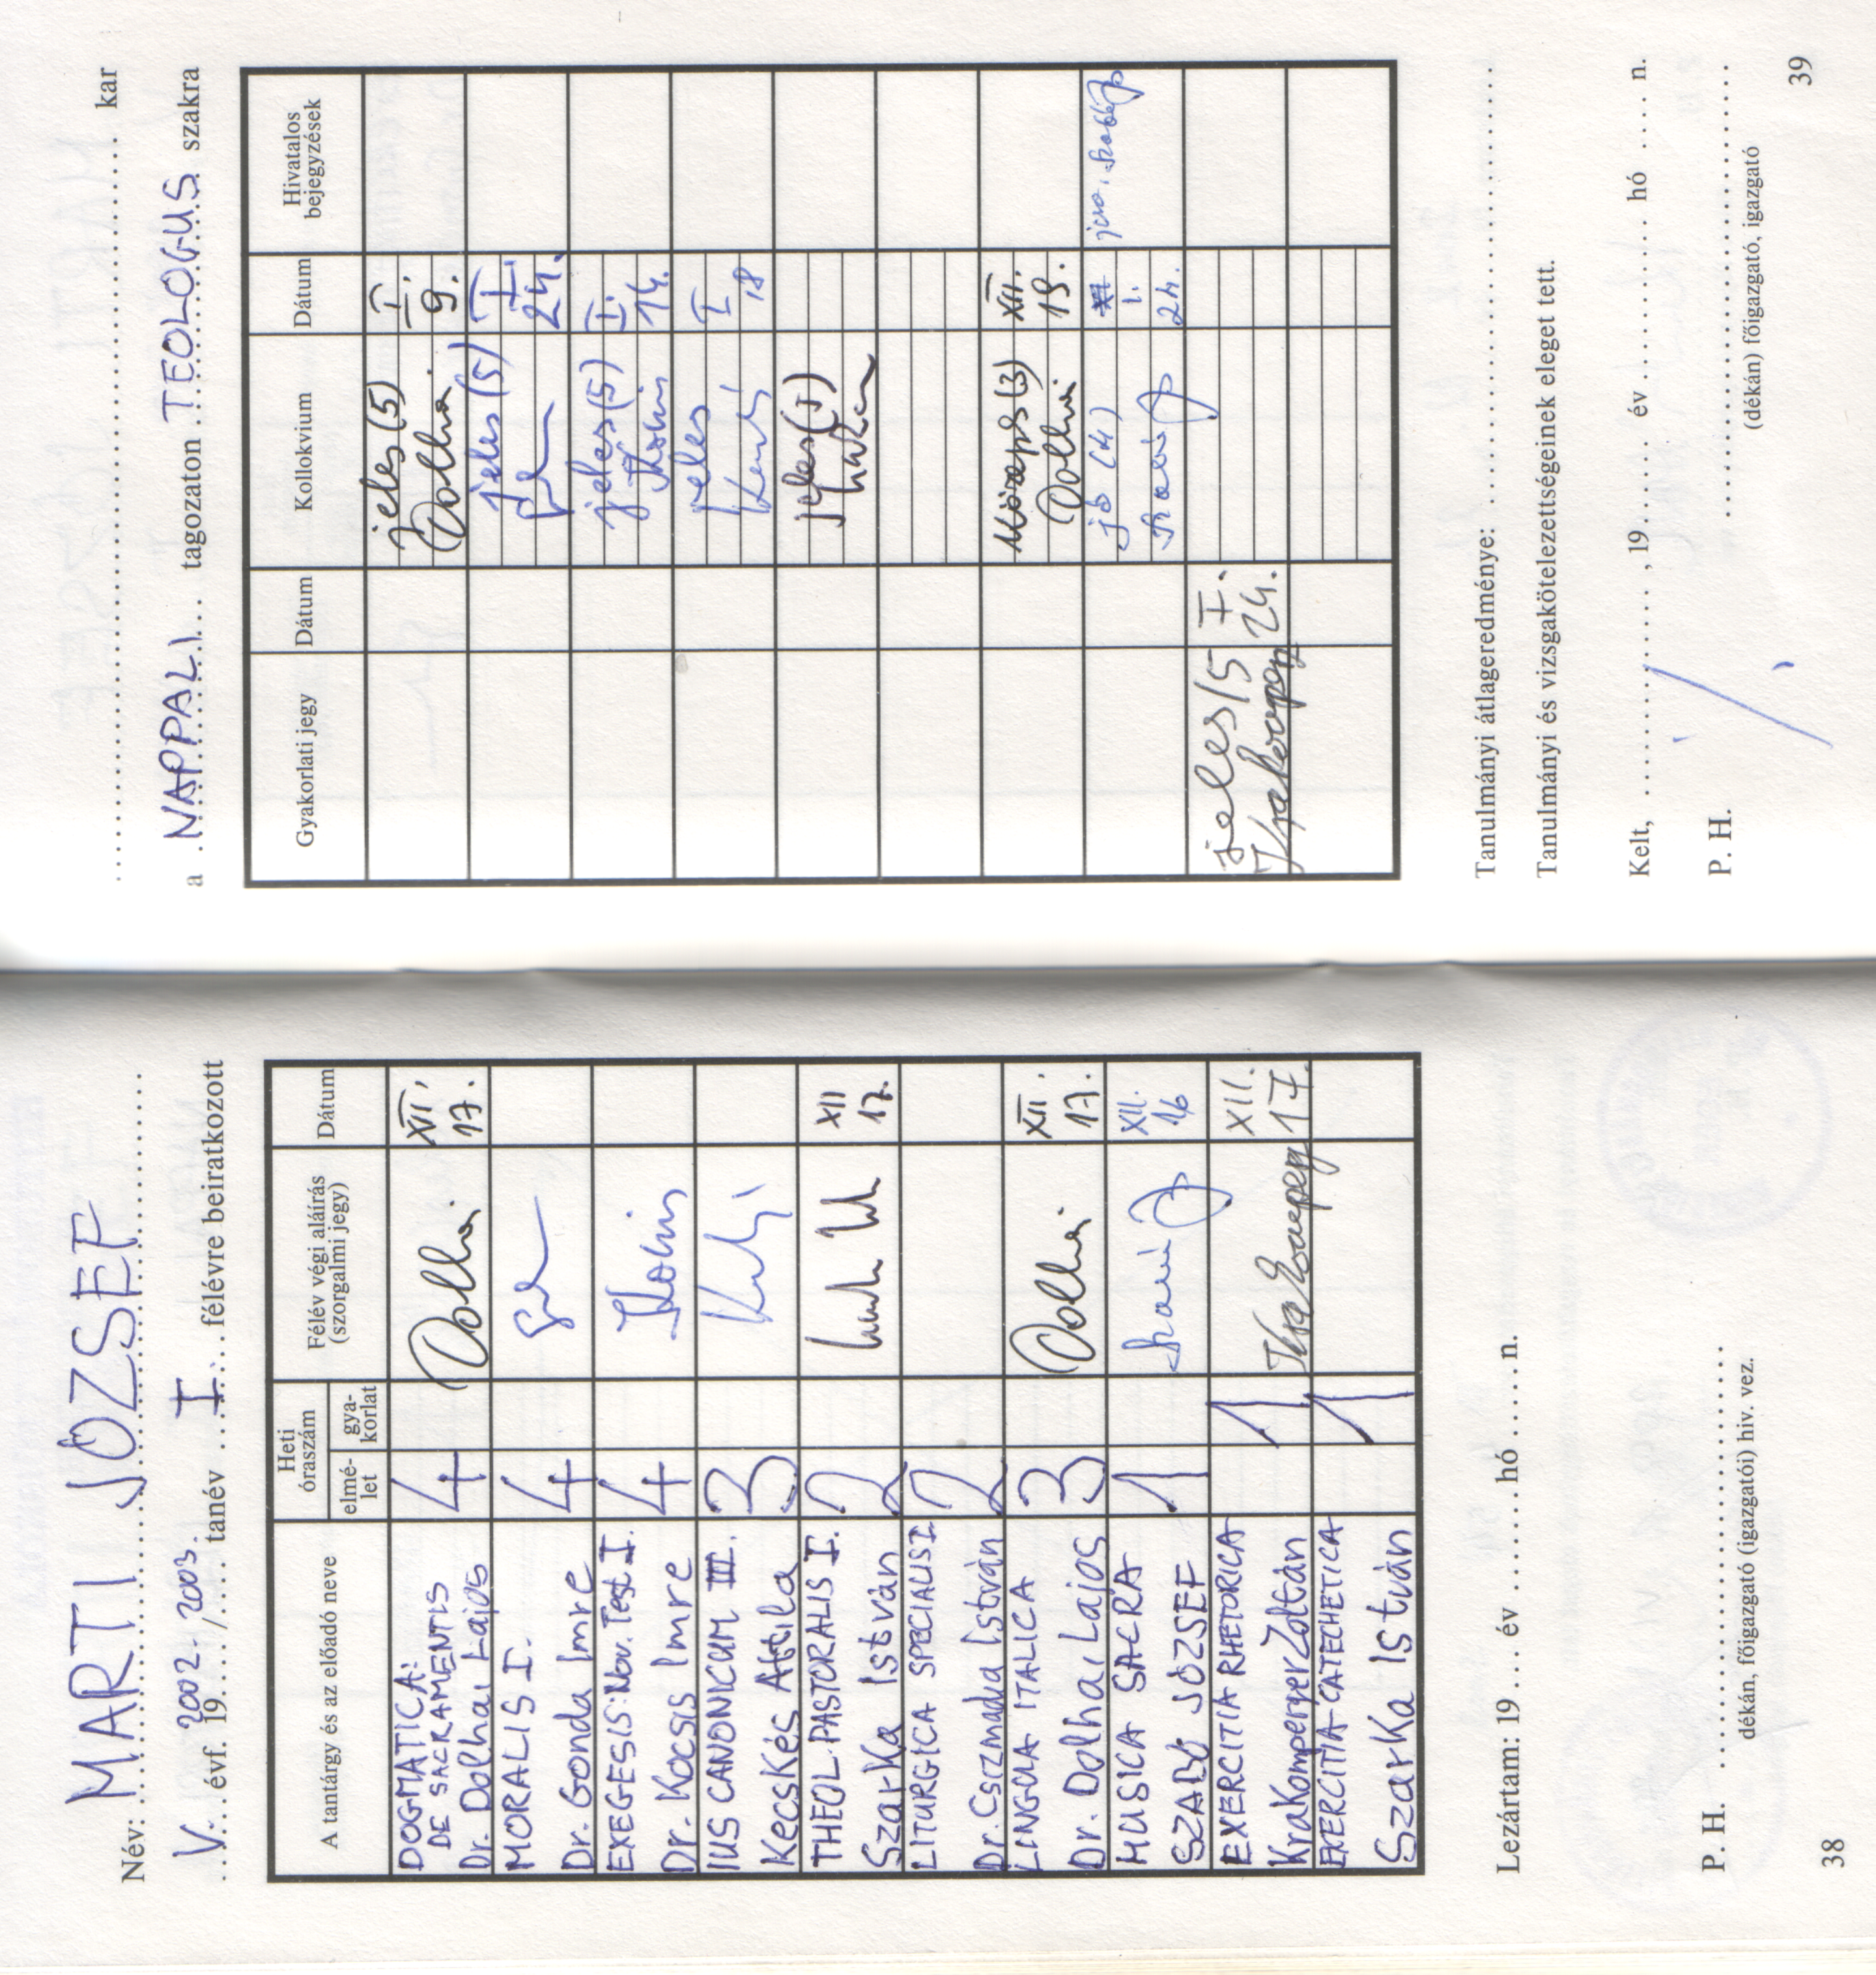 Név: MARTI JÓZSEF
V. évf. 19 2002-/2003. tanév I félévre beiratkozott
A tantárgy és az előadó neve
Heti óraszám
elmé-
let
gya-
korlat
Félév végi aláírás
(szorgalmi jegy)
Dátum
DOGMATICA:
DE SACRAMENTIS
Dr. Dolhai Lajos
4
Dolhai
XII.
17.
MORALIS I.
Dr. Gonda Imre
4
EXEGESIS: Nov. Test. I.
Dr. Kocsis Imre
4
Kocsis
IUS CANONICUM III.
Kecskés Attila
3
THEOL. PASTORALIS I.
Szarka István
2
XII
17.
LITURGICA SPECIALIS I.
Dr. Csizmadia István
2
LINGUA ITALICA
Dr. Dolhai Lajos
3
Dolhai
XII.
17.
MUSICA SACRA
SZABÓ JÓZSEF
1
XII.
16
EXERCITIA RHETORICA
Krakomperger Zoltán
1
Krakomperger
XII.
17.
EXERCITIA CATECHETICA
Szarka István
1
Lezártam: 19 ... év ....... hó ..... n.
P. H.
dékán, főigazgató (igazgatói) hiv. vez.
38
kar
a NAPPALI tagozaton TEOLOGUS szakra
Gyakorlati jegy
Dátum
Kollokvium
Dátum
Hivatalos
bejegyzések
jeles (5)
Dolhai
I.
9.
jeles (5)
I.
24.
jeles (5)
Kocsis
I.
14.
jeles
I
18
jeles (5)
közepes (3)
Dolhai
XII.
19.
jó (4)
1.
24.
jeles (5
Krakomperger
I.
24.
Tanulmányi átlageredménye:
Tanulmányi és vizsgakötelezettségeinek eleget tett.
Kelt, ............ , 19 ..... év ........ hó .... n.
P. H.
(dékán) főigazgató, igazgató
39